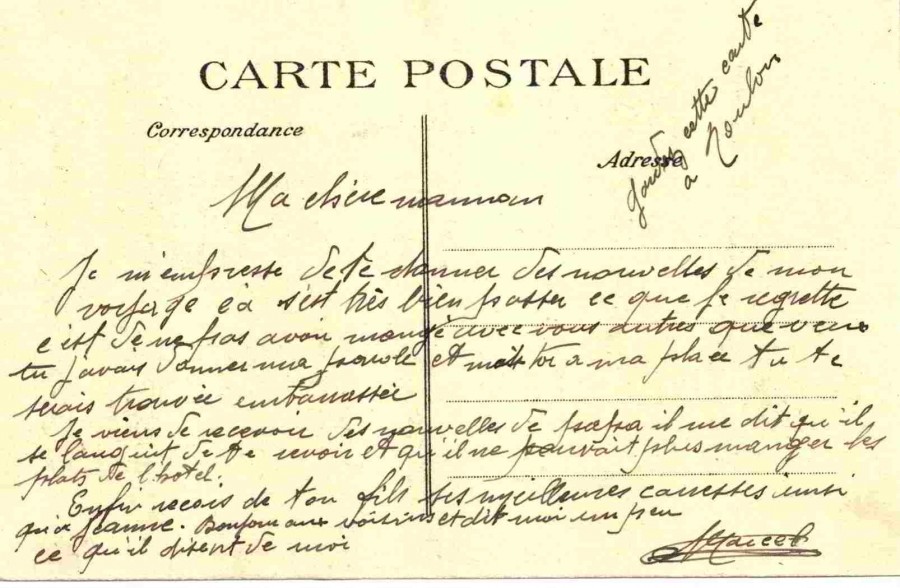 CARTE POSTALE
Correspondance
Adresse
gardez cette carte
a Toulon
Ma chère maman
Je m'empresse de te donner des nouvelles de mon
voyage ça s'est très bien passer ce que je regrette
c'est de ne pas avoir mangé avec vous autres que veux
tu j'avais donner ma parole et mets toi a ma place tu te
serais trouvée embarrassée
Je viens de recevoir des nouvelles de papa il me dit qu'il
se languit de te revoir et qu'il ne pouvait plus manger les
plats de l'hotel.
Enfin recois de ton fils ses meilleures caresses insi
qu'a Jeanne. Bonjour aux voisins et dit moi un peu
ce qu'il disent de moi
Marcel